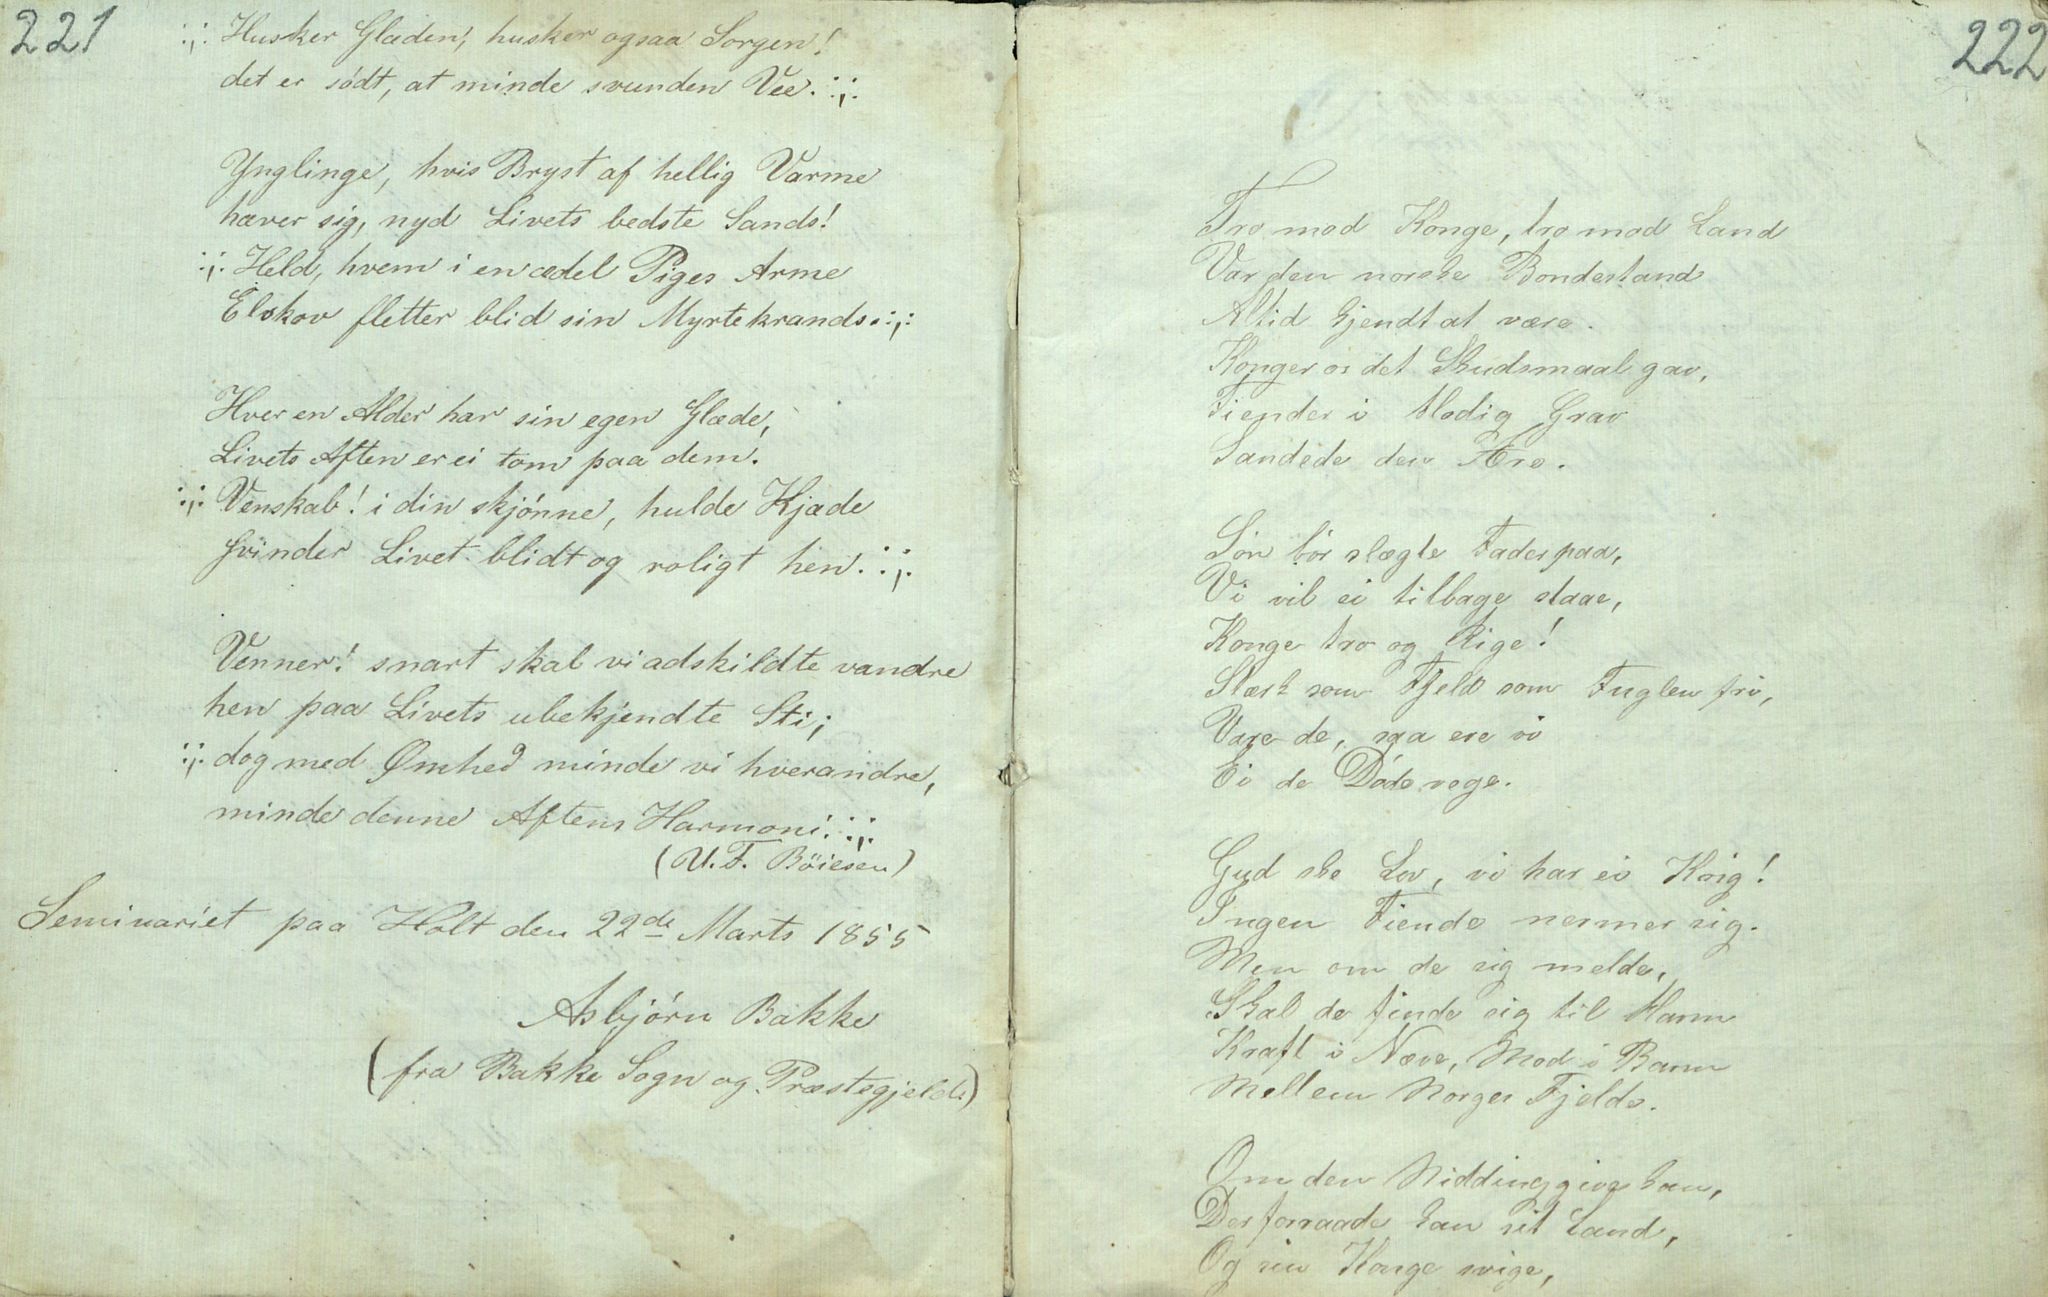 221
:,: Husker Glæden, husker ogsaa Sorgen!
det er sódt, at minde svunden Vee. :,:
Ynglinge, hvis Bryst af hellig Varme
hæver sig, nyd Livets bedste Sands!
:,: Held, hvem i en ædel Piges Arme
Elskov fletter blid sin Myrtekrands. :,:
Hver en Alder har sin egen Glæde,
Livets Aften er ei tom paa dem.
:,: Venskab! i din skjónne, hulde Kjæde
svinder Livet blidt og roligt hen. :,:
Venner! snart skal vi adskildte vandre
hen paa Livets ubekjendte Sti;
:,: dog med Ømhed minde vi hverandre,
minde denne Aftens Harmoni. :,:
(U. F. Böiesen)
Seminariet paa Holt den 22de Marts 1855
Asbjórn Bakke
(fra Bakke Sogn og Præstegjeld)
222
Tro mod Konge, tro mod Land
Var den norske Bondestand
Altid kjendt at være.
Konger os det Skudsmaal gav,
Fiender i blodig Grav
Sandede den Ære.
Són bór slægte Fader paa,
Vi vil ei tilbage staae,
Konge tro og Rige!
Stærk som Fjeld som Fuglen fri,
Vare de, saa ere vi
Ei de Dóde vege.
Gud ske Lov, vi har ei Krig!
Ingen Fiende nermer sig.
Men om de sig melde,
Skal de finde sig til Mann
Kraft i Næve, Mod i Bann
Mellem Norges Fjelde.
Om den Nidding gives kan,
Der forraade kan sit Land,
Og sin Konge svige,